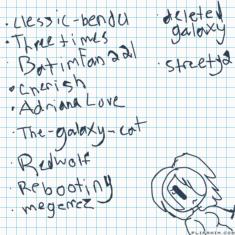 • clessic-bendu
• Three times
• BatimFan221
• cherish
• Adriana Love
• The-galaxy-cat
• Redwolf
• Rebooting
• megerrez
• deleted
galaxy
• streety2
FLIPANIM.COM